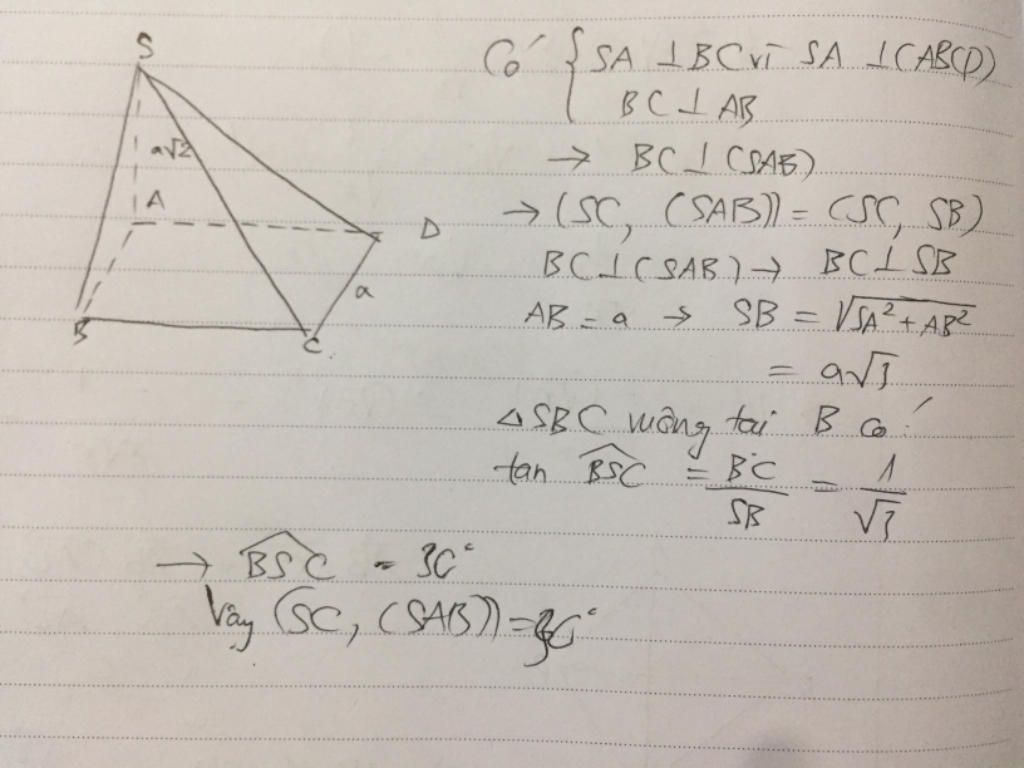 S
a√2
A
D
a
B
C
Có { SA ⊥ BC vì SA ⊥ (ABCD)
BC ⊥ AB
→ BC ⊥ (SAB)
→ (SC, (SAB)) = (SC, SB)
BC ⊥ (SAB) → BC ⊥ SB
AB = a → SB = √(SA² + AB²)
= a√3
△ SBC vuông tại B có:
tan BSC = BC/SB = 1/√3
→ BSC = 30°
Vậy (SC, (SAB)) = 30°